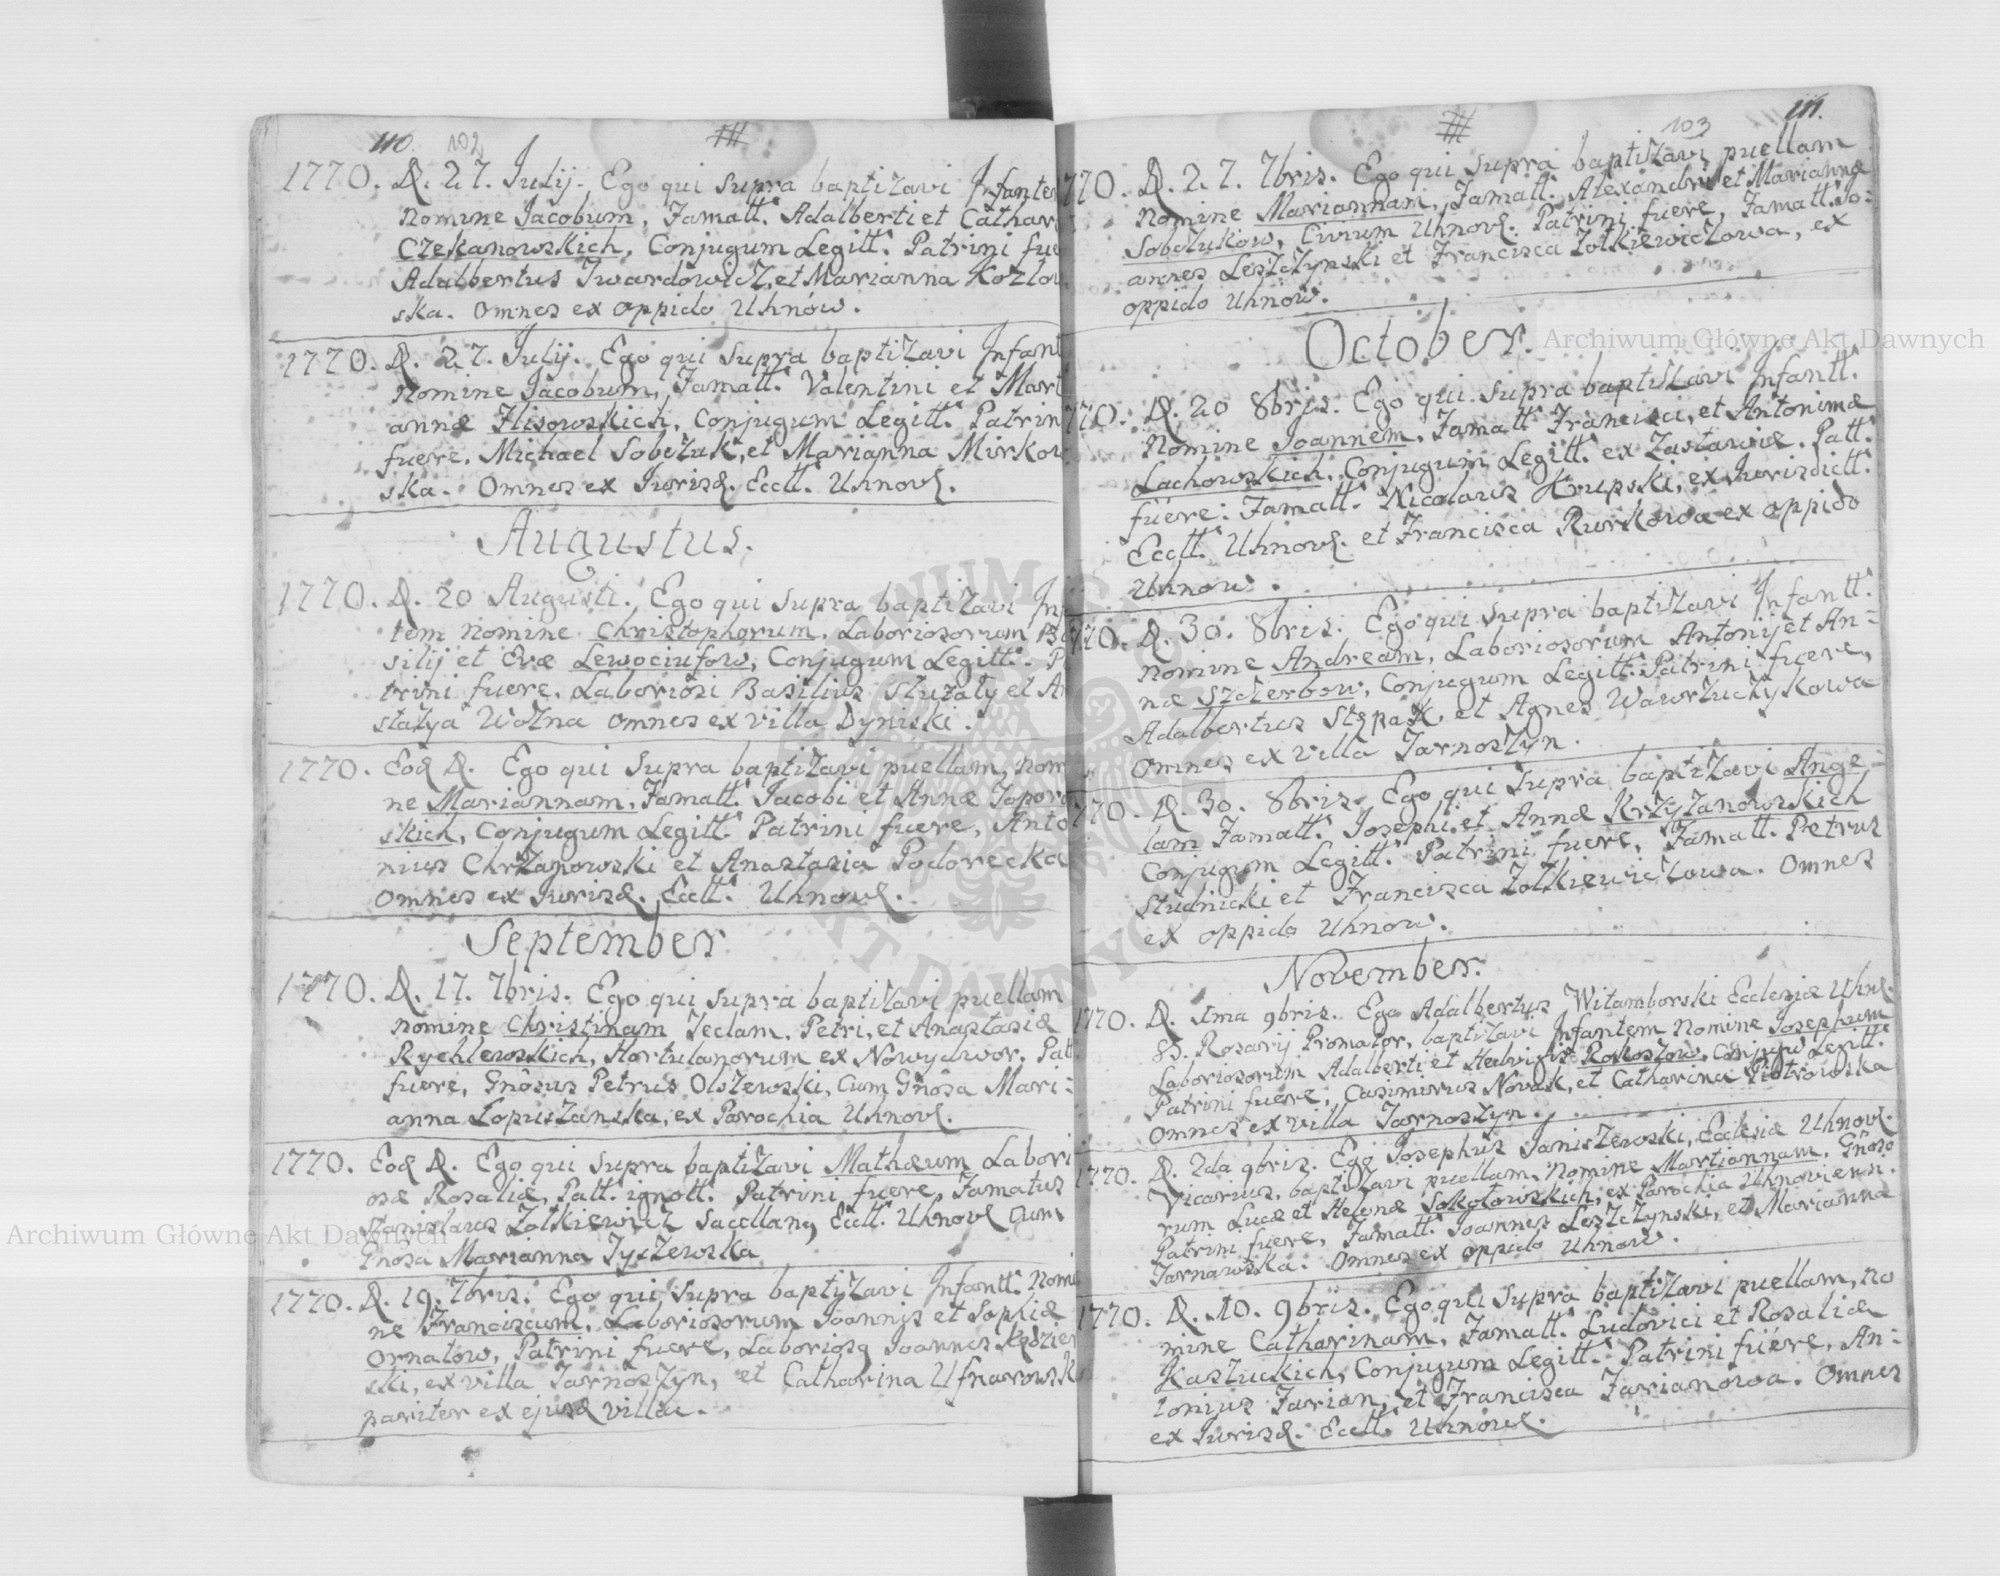 110. 102
1770. D. 27. Julij. Ego qui supra baptizavi Infantem
nomine Jacobum, Famatt. Adalberti et Cathar
Czekanowskich, Conjugum Legitt. Patrini fue
Adalbertus Twardowicz, et Marianna Kozlow
ska. Omnes ex oppido Uhnów.
1770. D. 27. Julij. Ego qui supra baptizavi Infant
nomine Jacobum, Famatt. Valentini et Mari
annæ Flisowskich, Conjugum Legitt. Patrin
fuere, Michael Sobczuk, et Marianna Mirkow
ska. Omnes ex Jurisd. Ecctt. Uhnov.
Augustus.
1770. D. 20 Augusti. Ego qui supra baptizavi Inf
tem nomine Christophorum, Laboriosorum Ba
silij et Evæ Lewociufow, Conjugum Legitt. P
trini fuere, Laboriosi Basilius Sluzaly et A
stazya Wozna omnes ex villa Dyniski.
1770. Eod D. Ego qui supra baptizavi puellam, nom
ne Mariannam, Famatt. Jacobi et Annæ Zaporo
skich, Conjugum Legitt. Patrini fuere, Anto
nius Chrzanowski et Anastasia Podorecka
omnes ex Jurisd. Ecctt. Uhnov.
September
1770. D. 17. 7bris. Ego qui supra baptizavi puellam
nomine Christinam Teclam, Petri, et Anastasiæ
Rychlewskich, Hortulanorum ex Nowydwor, Patt
fuere, Gnôsus Petrus Olszewski, cum Gnôsa Mari-
anna Lopuszanska, ex Parochia Uhnov.
1770. Eod D. Ego qui supra baptizavi Mathæum Labori
osæ Rosaliæ, Patt. ignott. Patrini fuere, Famatus
Stanislaus Zolkiewicz Sacellang Ecctt. Uhnov cum
Gnosa Marianna Tyszewska
1770. D. 19. 7bris. Ego qui supra baptizavi Infantt. nomi
ne Franciscum, Laboriosorum Joannis et Sophiæ
Ornatow, Patrini fuere, Laboriosq Joannes Kędzier
ski, ex villa Tarnoszyn, et Catharina Ufnarowska
pariter ex ejusd villa.
103 111.
770. D. 27. 7bris. Ego qui supra baptizavi puellam
nomine Mariannam, Famatt. Alexandri et Mariannæ
Sobczukow, Civium Uhnov. Patrini fuere, Famatt. Jo-
annes Leszczynski et Francisca Zolkiewiczowa, ex
oppido Uhnow.
October.
770. D. 20 8bris. Ego qui supra baptizavi Infantt.
nomine Joannem, Famatt Francisci, et Antoninæ
Lachowskich, Conjugum Legitt. ex Zastawie. Patt.
fuere: Famatt. Nicolaus Krupski, ex Jurisdictt.
Ecctt. Uhnov. et Francisca Rurkowa ex oppido
Uhnow.
770. D. 30. 8bris. Ego qui supra baptizavi Infantt.
nomine Andream, Laboriosorum Antonij et An-
næ Szczerbow, Conjugum Legitt. Patrini fuere,
Adalbertus Stępak, et Agnes Wawrzuczykowa
omnes ex villa Tarnoszyn.
770. D. 30. 8bris. Ego qui supra baptizavi Ange-
lam Famatt. Josephi, et Annæ Krzyżanowskich
Conjugum Legitt. Patrini fuere, Famatt. Petrus
Studnicki et Francisca Zolkiewiczowa. Omnes
ex oppido Uhnow.
November.
1770. D. 1ma 9bris. Ego Adalbertus Witamborski Ecclesiæ Uhn.
SS. Rosarij Promotor, baptizavi Infantem nomine Josephum
Laboriosorum Adalberti et Hedvigis Rokoszow, Conjug Legitt.
Patrini fuere, Casimirus Novak, et Catharina Piotrowska
Omnes ex villa Tarnoszyn.
1770. D. 2da 9bris. Ego Josephus Janiszewski, Ecclesiæ Uhnov.
Vicarius, baptizavi puellam, nomine Martiannam, Gnôso
rum Lucæ et Helenæ Sokolowskich, ex Parochia Uhnoviensi.
Patrini fuere, Famatt. Joannes Leszczynski, et Marianna
Tarnawska. Omnes ex oppido Uhnow.
1770. D. 10. 9bris. Ego qui supra baptizavi puellam, no
mine Catharinam, Famatt. Ludovici et Rosaliæ
Kaszuckich, Conjugum Legitt. Patrini fuere, An-
tonijus Farian, et Francisca Farianowa. Omnes
ex Jurisd. Ecctt. Uhnow.
Archiwum Główne Akt Dawnych
Archiwum Główne Akt Dawnych